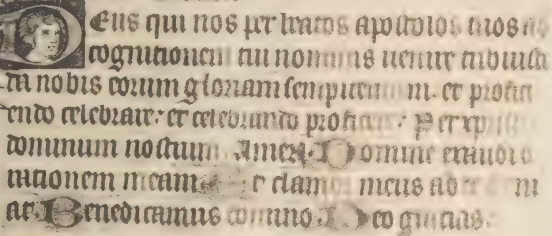 Deus qui nos per beatos apostolos tuos a
cognitionem tui nominis uenire tribuisti
da nobis eorum gloriam sempiternam et profici
endo celebrare: et celebrando proficere. Per xpistum
dominum nostrum. Amen. Domine exaudi o
rationem meam. et clamor meus ad te
at. Benedicamus domino. Deo gracias.